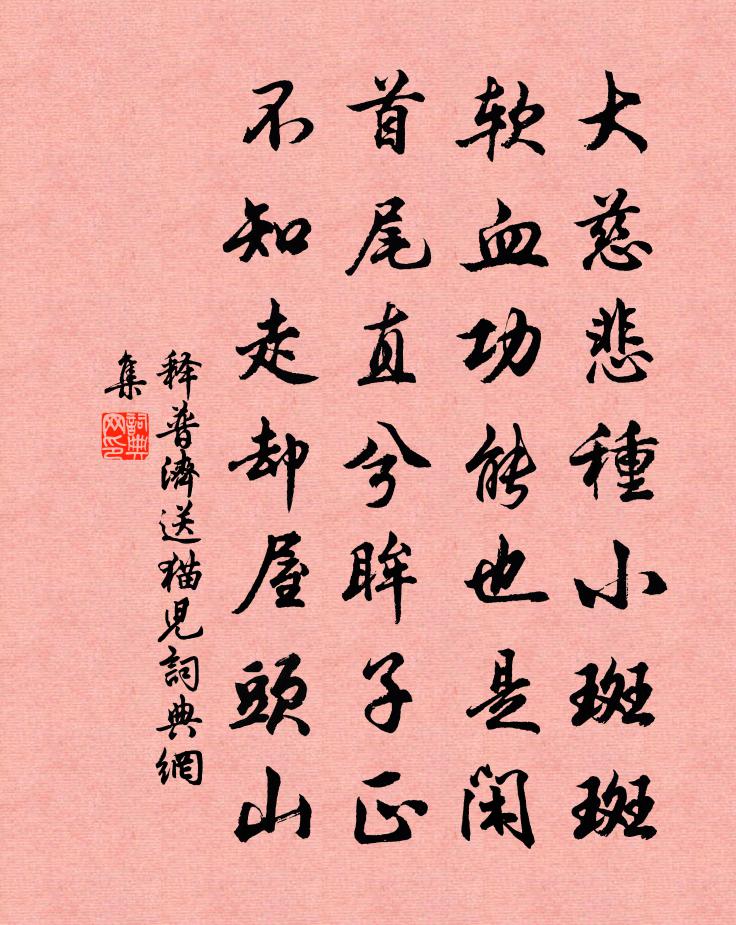 大慈悲種小斑斑
軟血功能也是閑
首尾直兮眸子正
不知走却屋頭山
释普濟送猫兒詞典網
集
詞典
网印